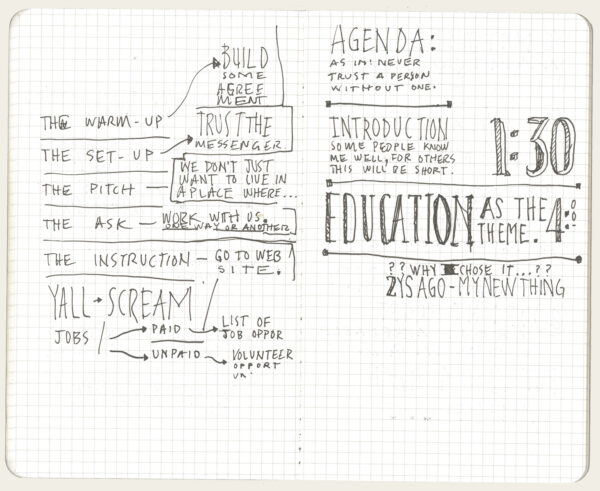 BUILD
SOME
AGREE
MENT
THE WARM-UP
TRUST THE
MESSENGER
THE SET-UP
WE DON'T JUST
WANT TO LIVE IN
A PLACE WHERE...
THE PITCH
THE ASK - WORK WITH US.
ONE WAY OR ANOTHER
THE INSTRUCTION - GO TO WEB
SITE.
YALL → SCREAM
JOBS
PAID
LIST OF
JOB OPPOR
UNPAID
VOLUNTEER
OPPORT
UN:
AGENDA:
AS IN: NEVER
TRUST A PERSON
WITHOUT ONE.
INTRODUCTION
SOME PEOPLE KNOW
ME WELL, FOR OTHERS
THIS WILL BE SHORT.
1:30
EDUCATION AS THE
THEME. 4:
?? WHY CHOSE IT...??
2YS AGO - MY NEW THING